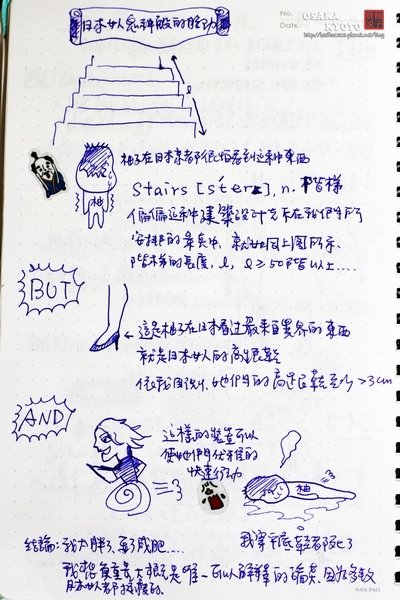 No.
Date
OSAKA
KYOTO
日本女人忍神般的腳力
l
柚
柚子在日本京都很怕看到這種東西
Stairs [sterz], n. 階梯
偏偏這種建築設計充斥在我們所
安排的景點中,就如同上圖所示,
階梯的長度, l, l ≥ 50階以上....
BUT
← 這是柚子在日本看過最
就是日本女人的高跟鞋
她們的高跟鞋至少 >3cm
AND
這樣的裝置可以
使她們優雅的
快速行動
柚
我穿平底鞋都死了
結論: 我太胖了、要減肥....
我想負重量太大很可能是唯一可以解釋的論點,因為多數
日本女人都挺瘦的.
NAN PAO